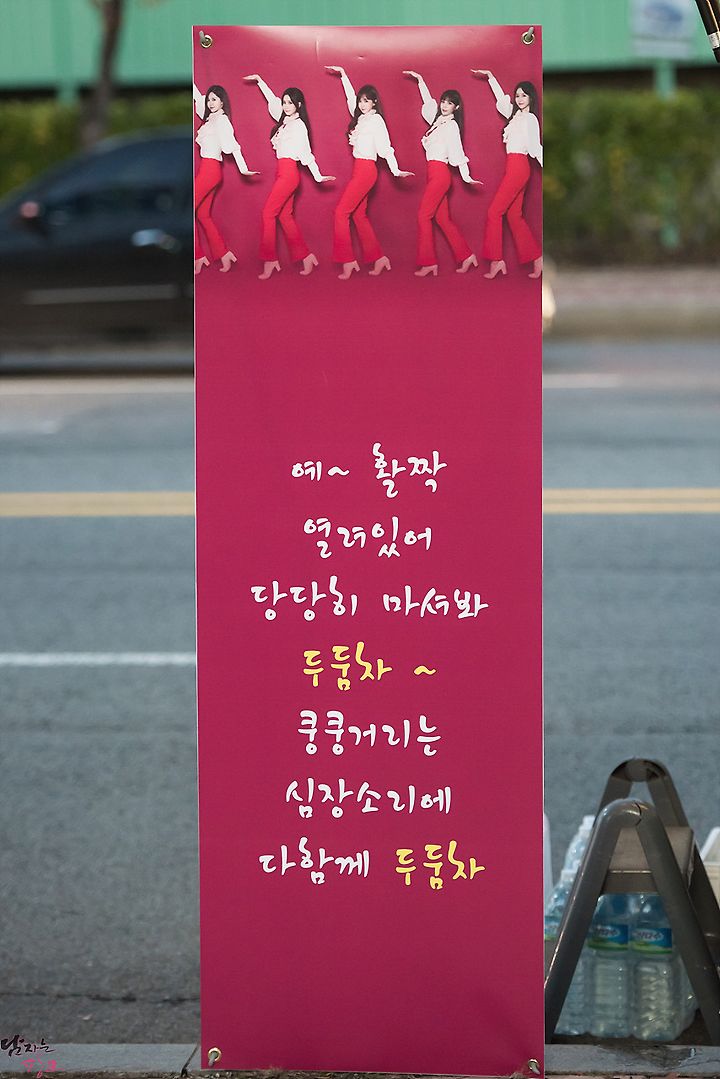 예~ 활짝
열려있어
당당히 마셔봐
두둠차 ~
쿵쿵거리는
심장소리에
다함께 두둠차